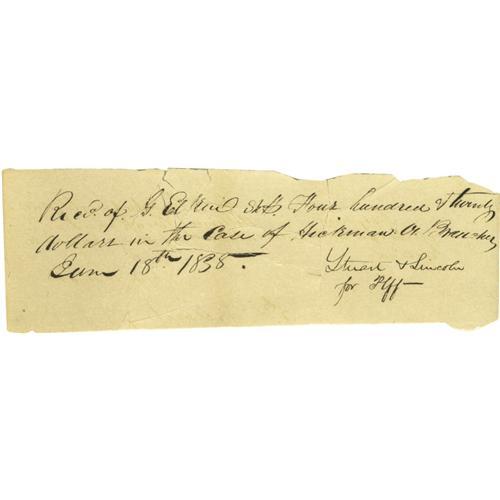 Recd. of G. Elkin Shff. Four hundred & twenty
dollars in the Case of Hickman vs.
June 18th 1838.
Stuart & Lincoln
for Plff